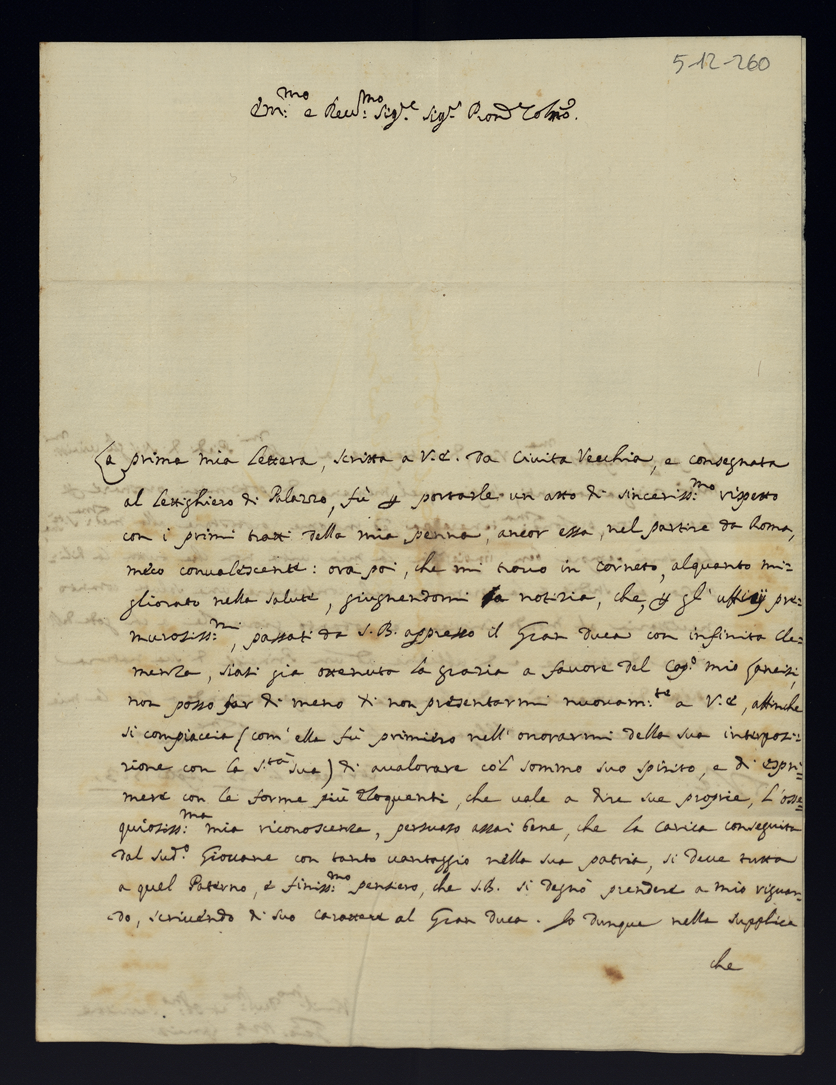 5-12-260
Em:mo e Reu:mo Sig.re Sig.r Pron Colmo.
La prima mia lettera, scritta a V.E. da Civita Vecchia, e consegnata
al lettighiero di Palazzo, fù p portarle un atto di sinceriss:mo rispetto
con i primi tratti della mia penna, ancor essa, nel partire da Roma,
meco convalescente: ora poi, che mi trovo in Corneto, alquanto mi=
gliorato nella salute, giugnendomi la notizia, che, p gl' uffizij pre=
murosiss:mi, passati da S.B. appresso il Gran Duca con infinita cle=
menza, siasi gia ottenuta la grazia a favore del Cap.o mio
non posso far di meno di non presentarmi nuovam:te a V.E, affinche
si compiaccia (com' ella fù primiero nell' onorarmi della sua interposi=
zione con la S.tà sua) di avalorare col sommo suo spirito, e di espri=
mere con le forme più eloquenti, che vale a dire sue proprie, l'osse=
quiosiss:ma mia riconoscenza, persuaso assai bene, che la carica conseguita
dal sud.o Giovane con tanto vantaggio nella sua patria, si deve tutta
a quel Paterno, e finiss:mo pensiero, che S.B. si degnò prendere a mio riguar=
do, scrivendo di suo carattere al Gran Duca. Io dunque nella supplica
che